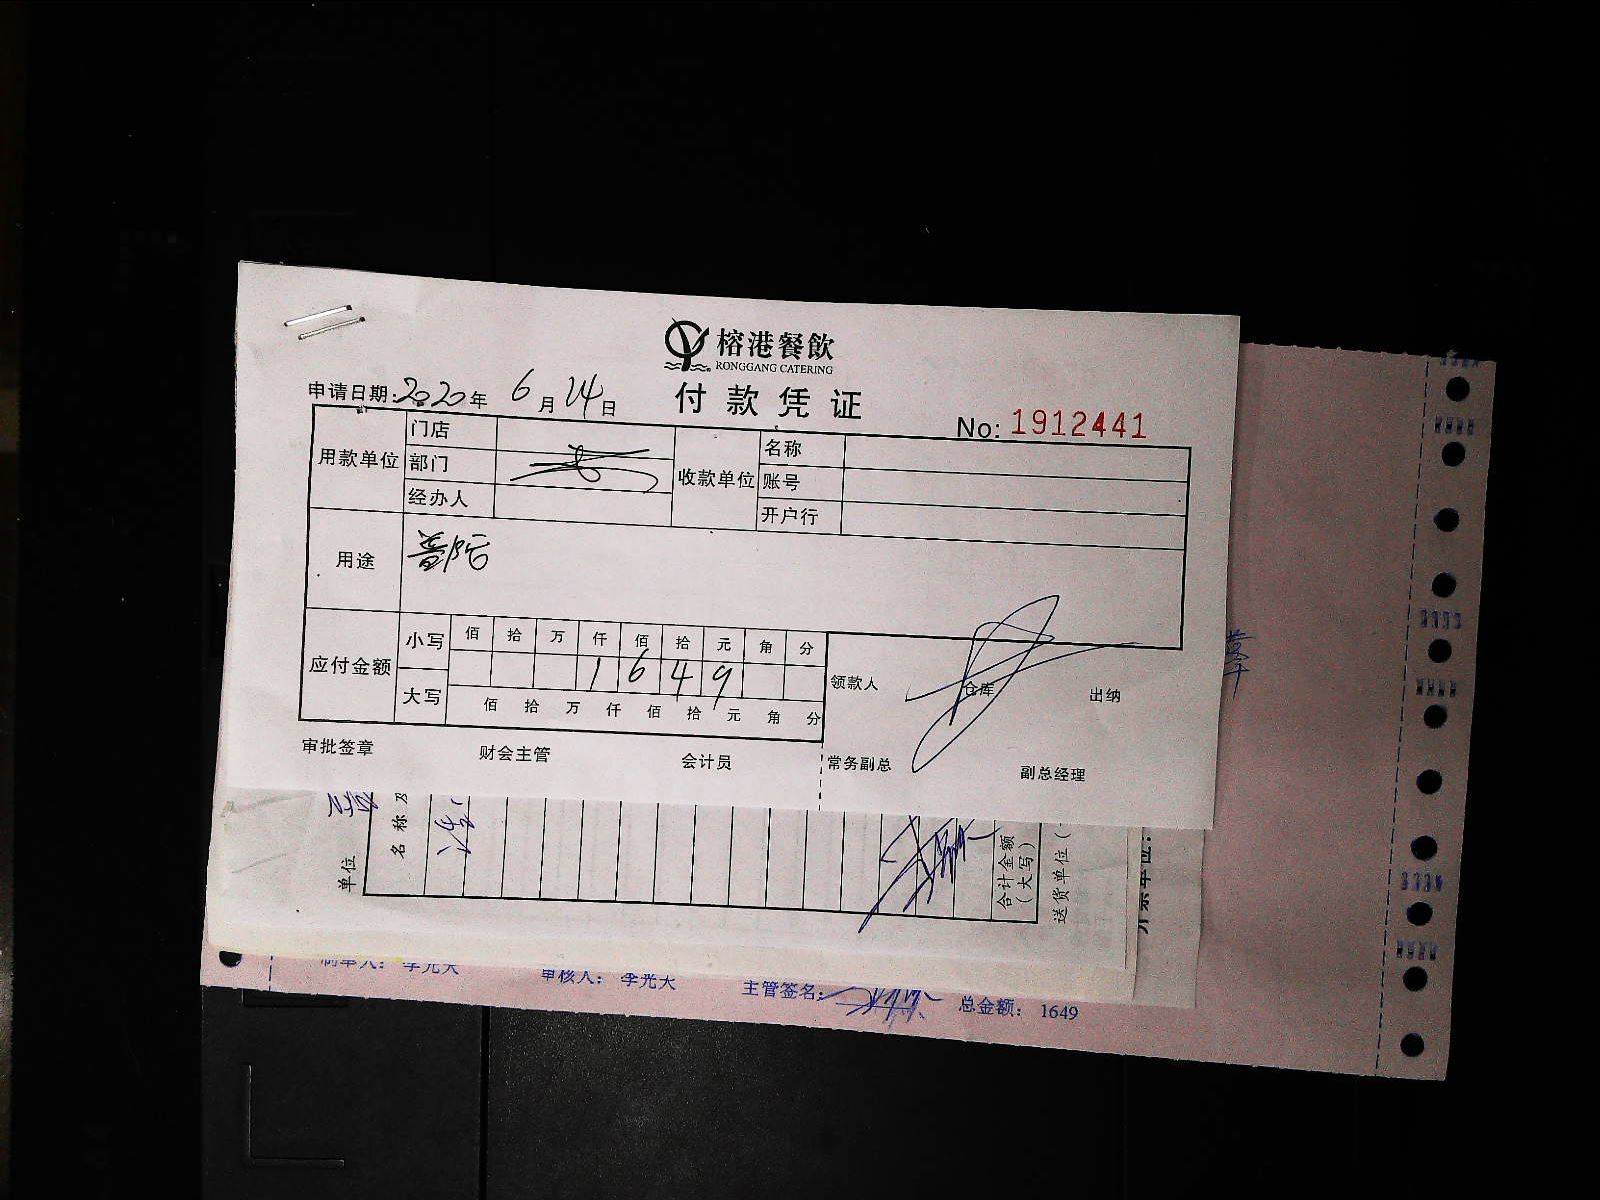 榕港餐飲
RONGGANG CATERING
付款凭证
申请日期:2020年6月14日
No: 1912441
用款单位 门店 收款单位 名称
部门 账号
经办人 开户行
用途 普陀
应付金额 小写 佰 拾 万 仟 佰 拾 元 角 分
1 6 4 9
大写 佰 拾 万 仟 佰 拾 元 角 分
领款人 仓库 出纳
审批签章 财会主管 会计员 常务副总 副总经理
单位
名称及
合计金额
（大写）
送货单位（
制单人： 李光大 审核人： 李光大 主管签名： 总金额： 1649